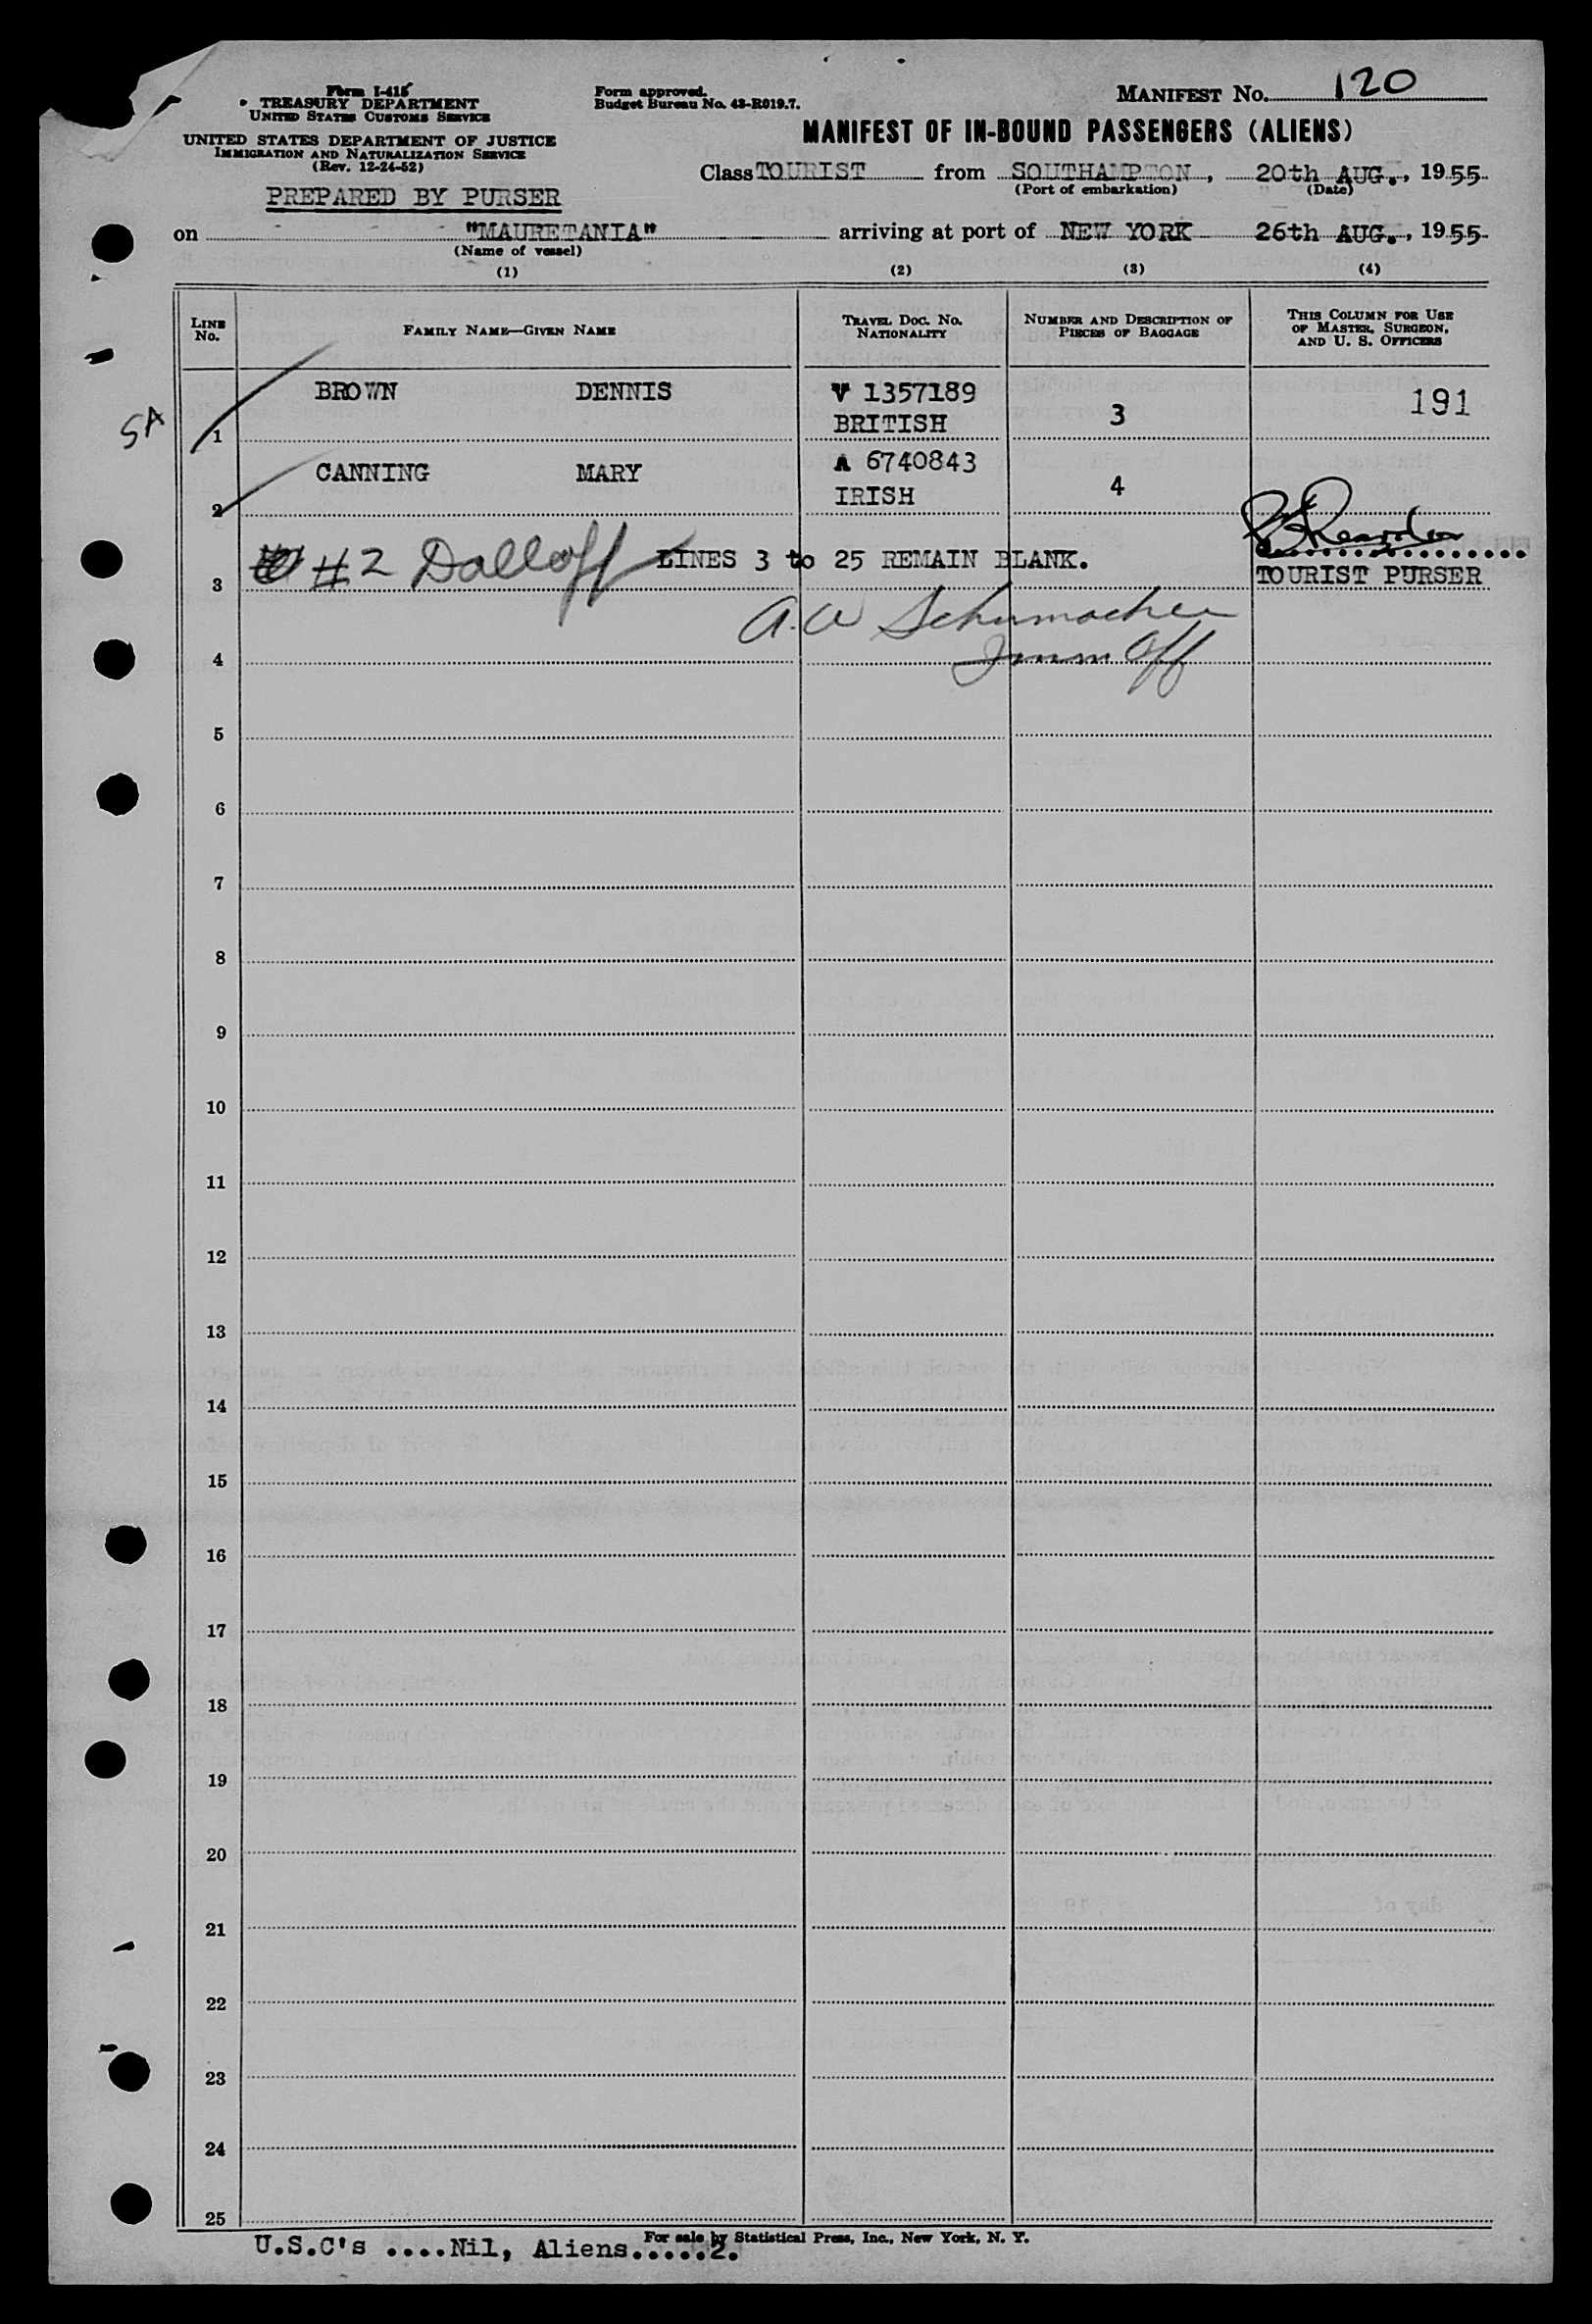 Form I-415
TREASURY DEPARTMENT
UNITED STATES CUSTOMS SERVICE
UNITED STATES DEPARTMENT OF JUSTICE
IMMIGRATION AND NATURALIZATION SERVICE
(Rev. 12-24-52)
PREPARED BY PURSER
Form approved.
Budget Bureau No. 43-R019.7.
MANIFEST NO. 120
MANIFEST OF IN-BOUND PASSENGERS (ALIENS)
Class TOURIST from SOUTHAMPTON, 20th AUG., 1955
(Port of embarkation) (Date)
on "MAURETANIA" arriving at port of NEW YORK 26th AUG., 1955
(Name of vessel)
(1) (2) (3) (4)
LINE NO.
FAMILY NAME—GIVEN NAME
TRAVEL DOC. NO. NATIONALITY
NUMBER AND DESCRIPTION OF PIECES OF BAGGAGE
THIS COLUMN FOR USE OF MASTER, SURGEON, AND U. S. OFFICERS
SA
BROWN DENNIS V 1357189 191
1 BRITISH 3
CANNING MARY A 6740843
2 IRISH 4
#2 Dalloff LINES 3 to 25 REMAIN BLANK.
3 TOURIST PURSER
A.W Schumacher
4 Imm Off
5
6
7
8
9
10
11
12
13
14
15
16
17
18
19
20
21
22
23
24
25
For sale by Statistical Press, Inc., New York, N. Y.
U.S.C's ....Nil, Aliens.....2.